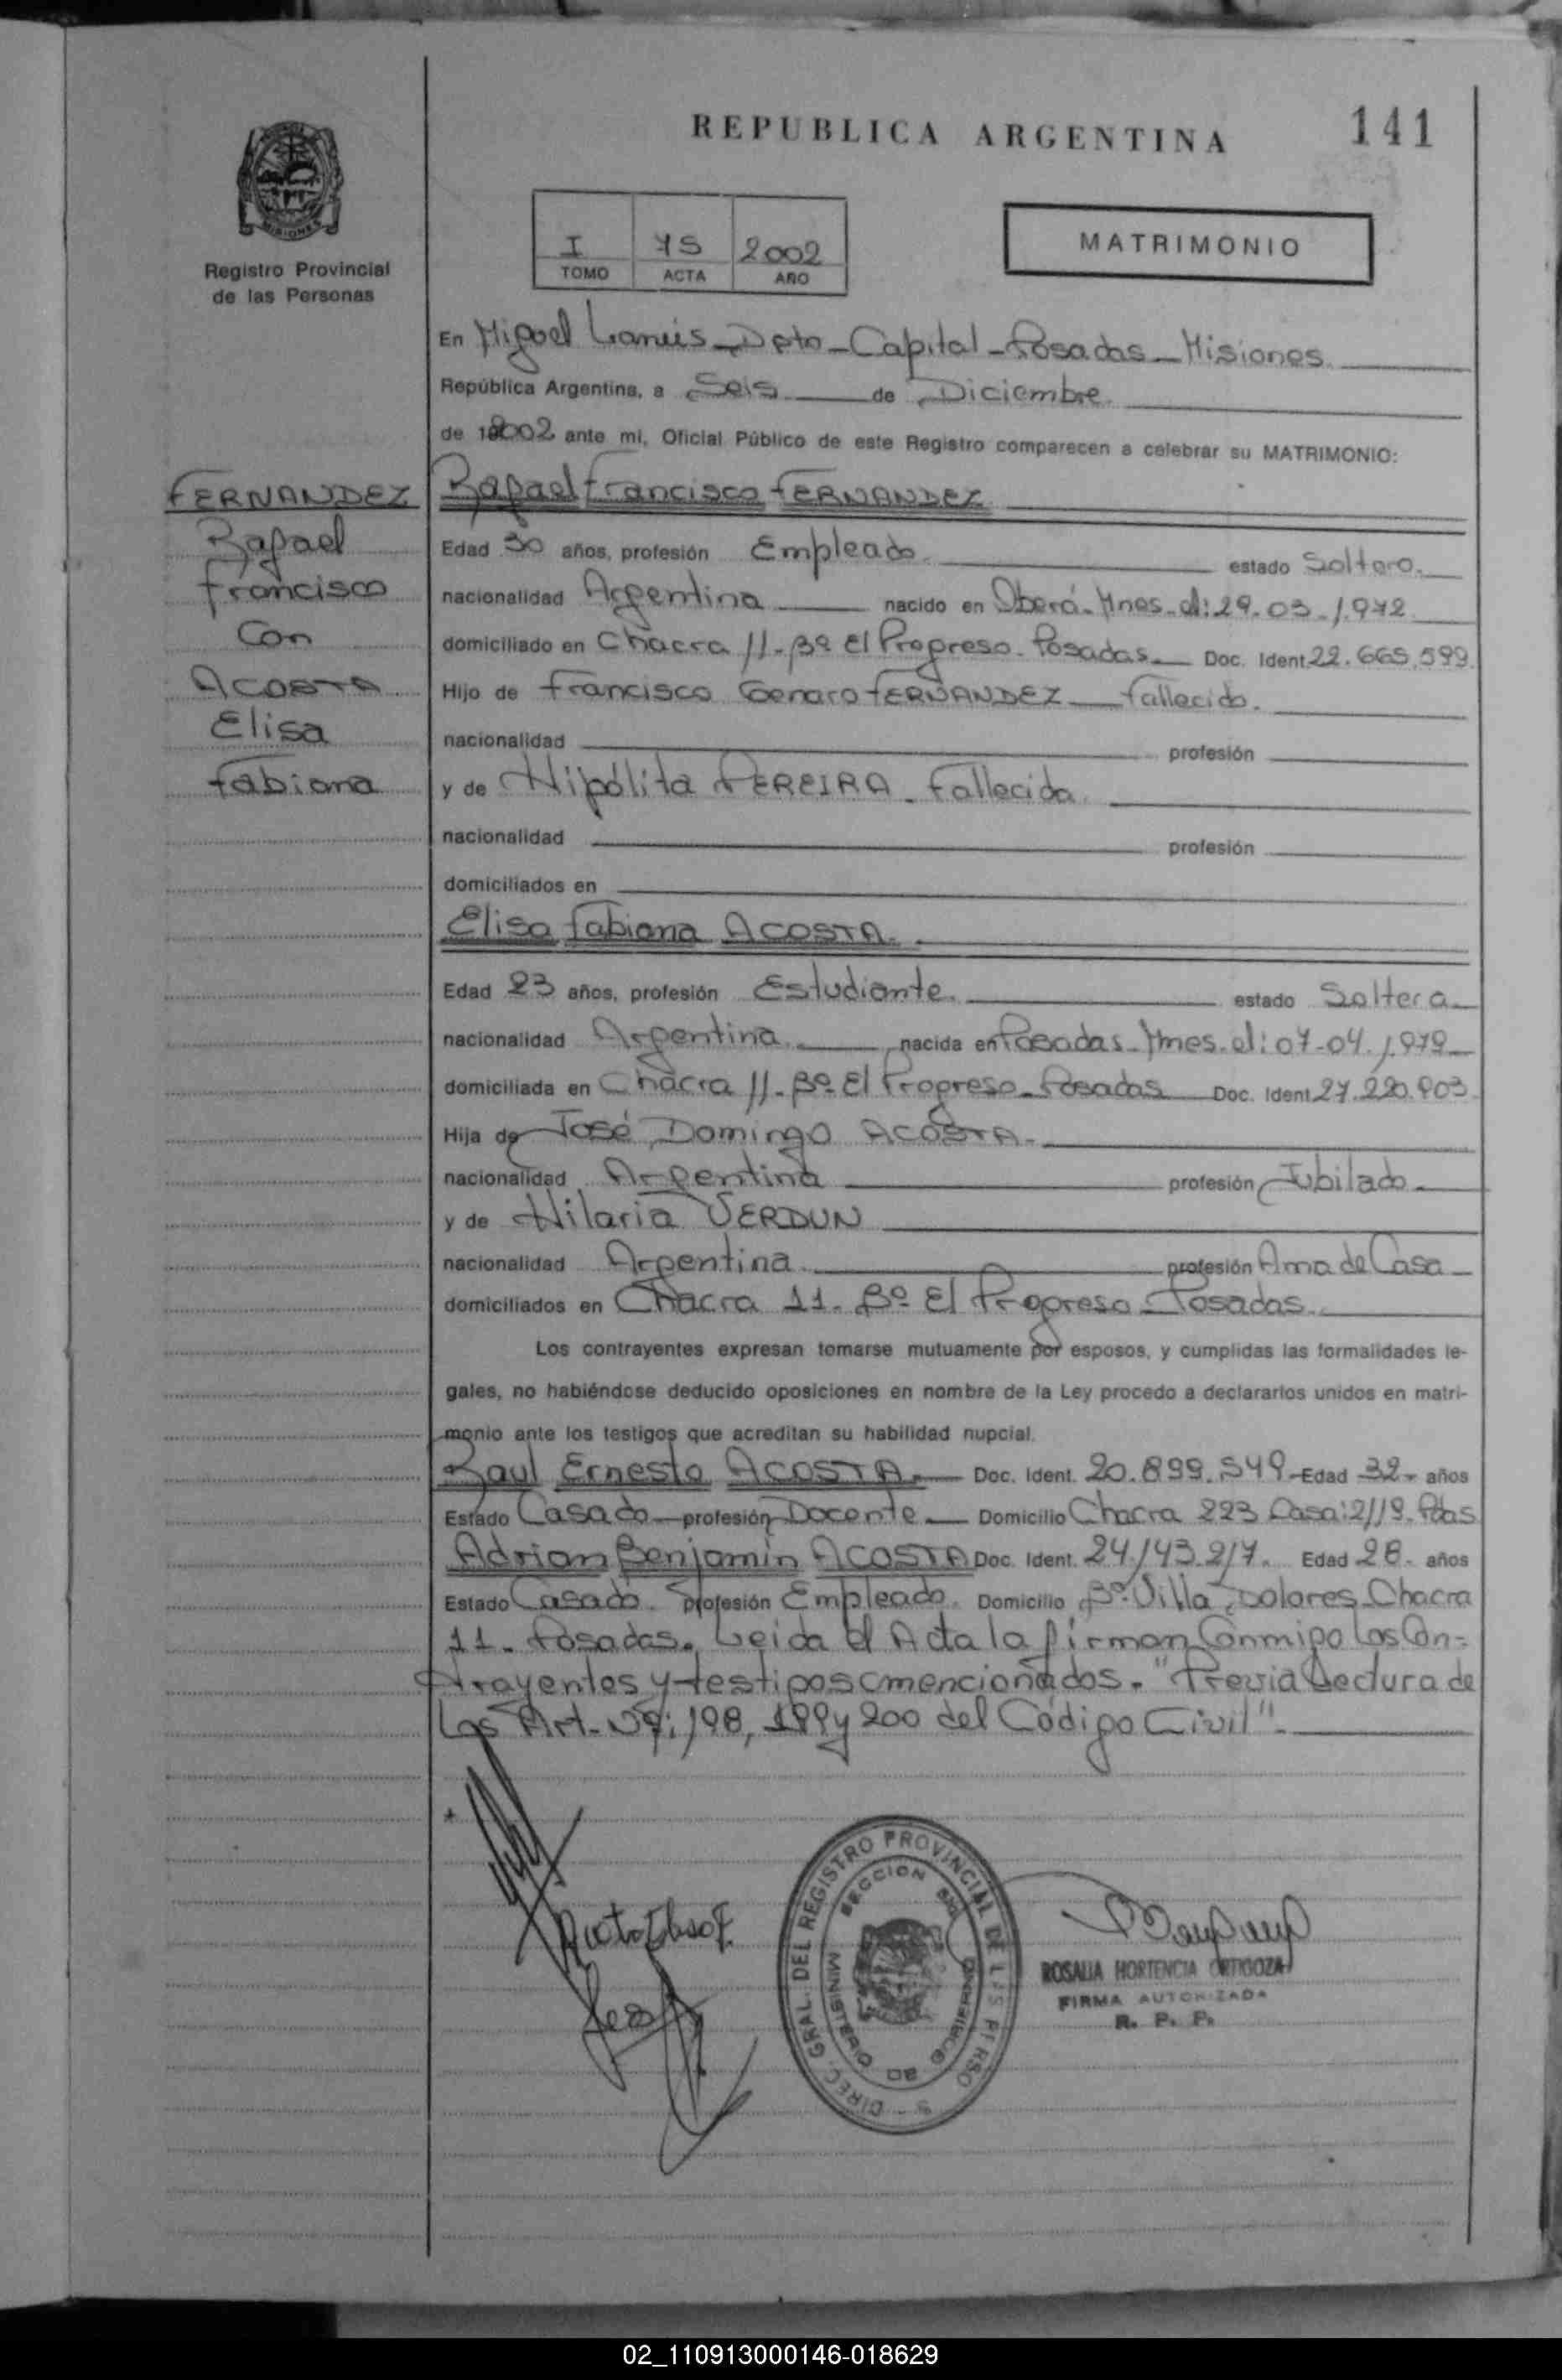 REPUBLICA ARGENTINA
141
MISIONES
Registro Provincial
de las Personas
I 75 2002
TOMO ACTA AÑO
MATRIMONIO
En Miguel Lanús - Dpto - Capital - Posadas - Misiones
República Argentina, a Seis de Diciembre
de 2002 ante mi, Oficial Público de este Registro comparecen a celebrar su MATRIMONIO:
FERNANDEZ
Rafael
Francisco
Con
ACOSTA
Elisa
Fabiana
Rafael Francisco FERNANDEZ
Edad 30 años, profesión Empleado. estado Soltero.
nacionalidad Argentina nacido en Oberá - Mnes. el: 29.03-1.972
domiciliado en Chacra 11 - Bº El Progreso - Posadas Doc. Ident. 22.665.599
Hijo de Francisco Genaro FERNANDEZ Fallecido.
nacionalidad profesión
y de Hipólita PEREIRA - Fallecida
nacionalidad profesión
domiciliados en
Elisa Fabiana ACOSTA.
Edad 23 años, profesión Estudiante. estado Soltera
nacionalidad Argentina nacida en Posadas - Mnes. el: 07-04-1.979
domiciliada en Chacra 11 - Bº El Progreso - Posadas Doc. Ident. 27.220.903
Hija de José Domingo ACOSTA.
nacionalidad Argentina profesión Jubilado
y de Hilaria VERDUN
nacionalidad Argentina profesión Ama de Casa
domiciliados en Chacra 11 - Bº El Progreso - Posadas.
Los contrayentes expresan tomarse mutuamente por esposos, y cumplidas las formalidades le-
gales, no habiéndose deducido oposiciones en nombre de la Ley procedo a declararlos unidos en matri-
monio ante los testigos que acreditan su habilidad nupcial.
Raul Ernesto ACOSTA. Doc. Ident. 20.899.549 Edad 32 años
Estado Casado profesión Docente Domicilio Chacra 223 Casa: 2119. Pdas
Adrian Benjamin ACOSTA Doc. Ident. 24.143.217. Edad 28 años
Estado Casado. profesión Empleado. Domicilio Bº Villa Dolores Chacra
11 - Posadas. Leida el Acta la firman Conmigo los Con-
trayentes y testigos mencionados. "Previa Lectura de
Los Art. Nº: 198, 199 y 200 del Código Civil".
DIREC. GRAL. DEL REGISTRO PROVINCIAL DE LAS PERSO S
MINISTERIO DE GOBIERNO
SECCION
ROSALIA HORTENCIA ORTIGOZA
FIRMA AUTORIZADA
R. P. P.
02_110913000146-018629